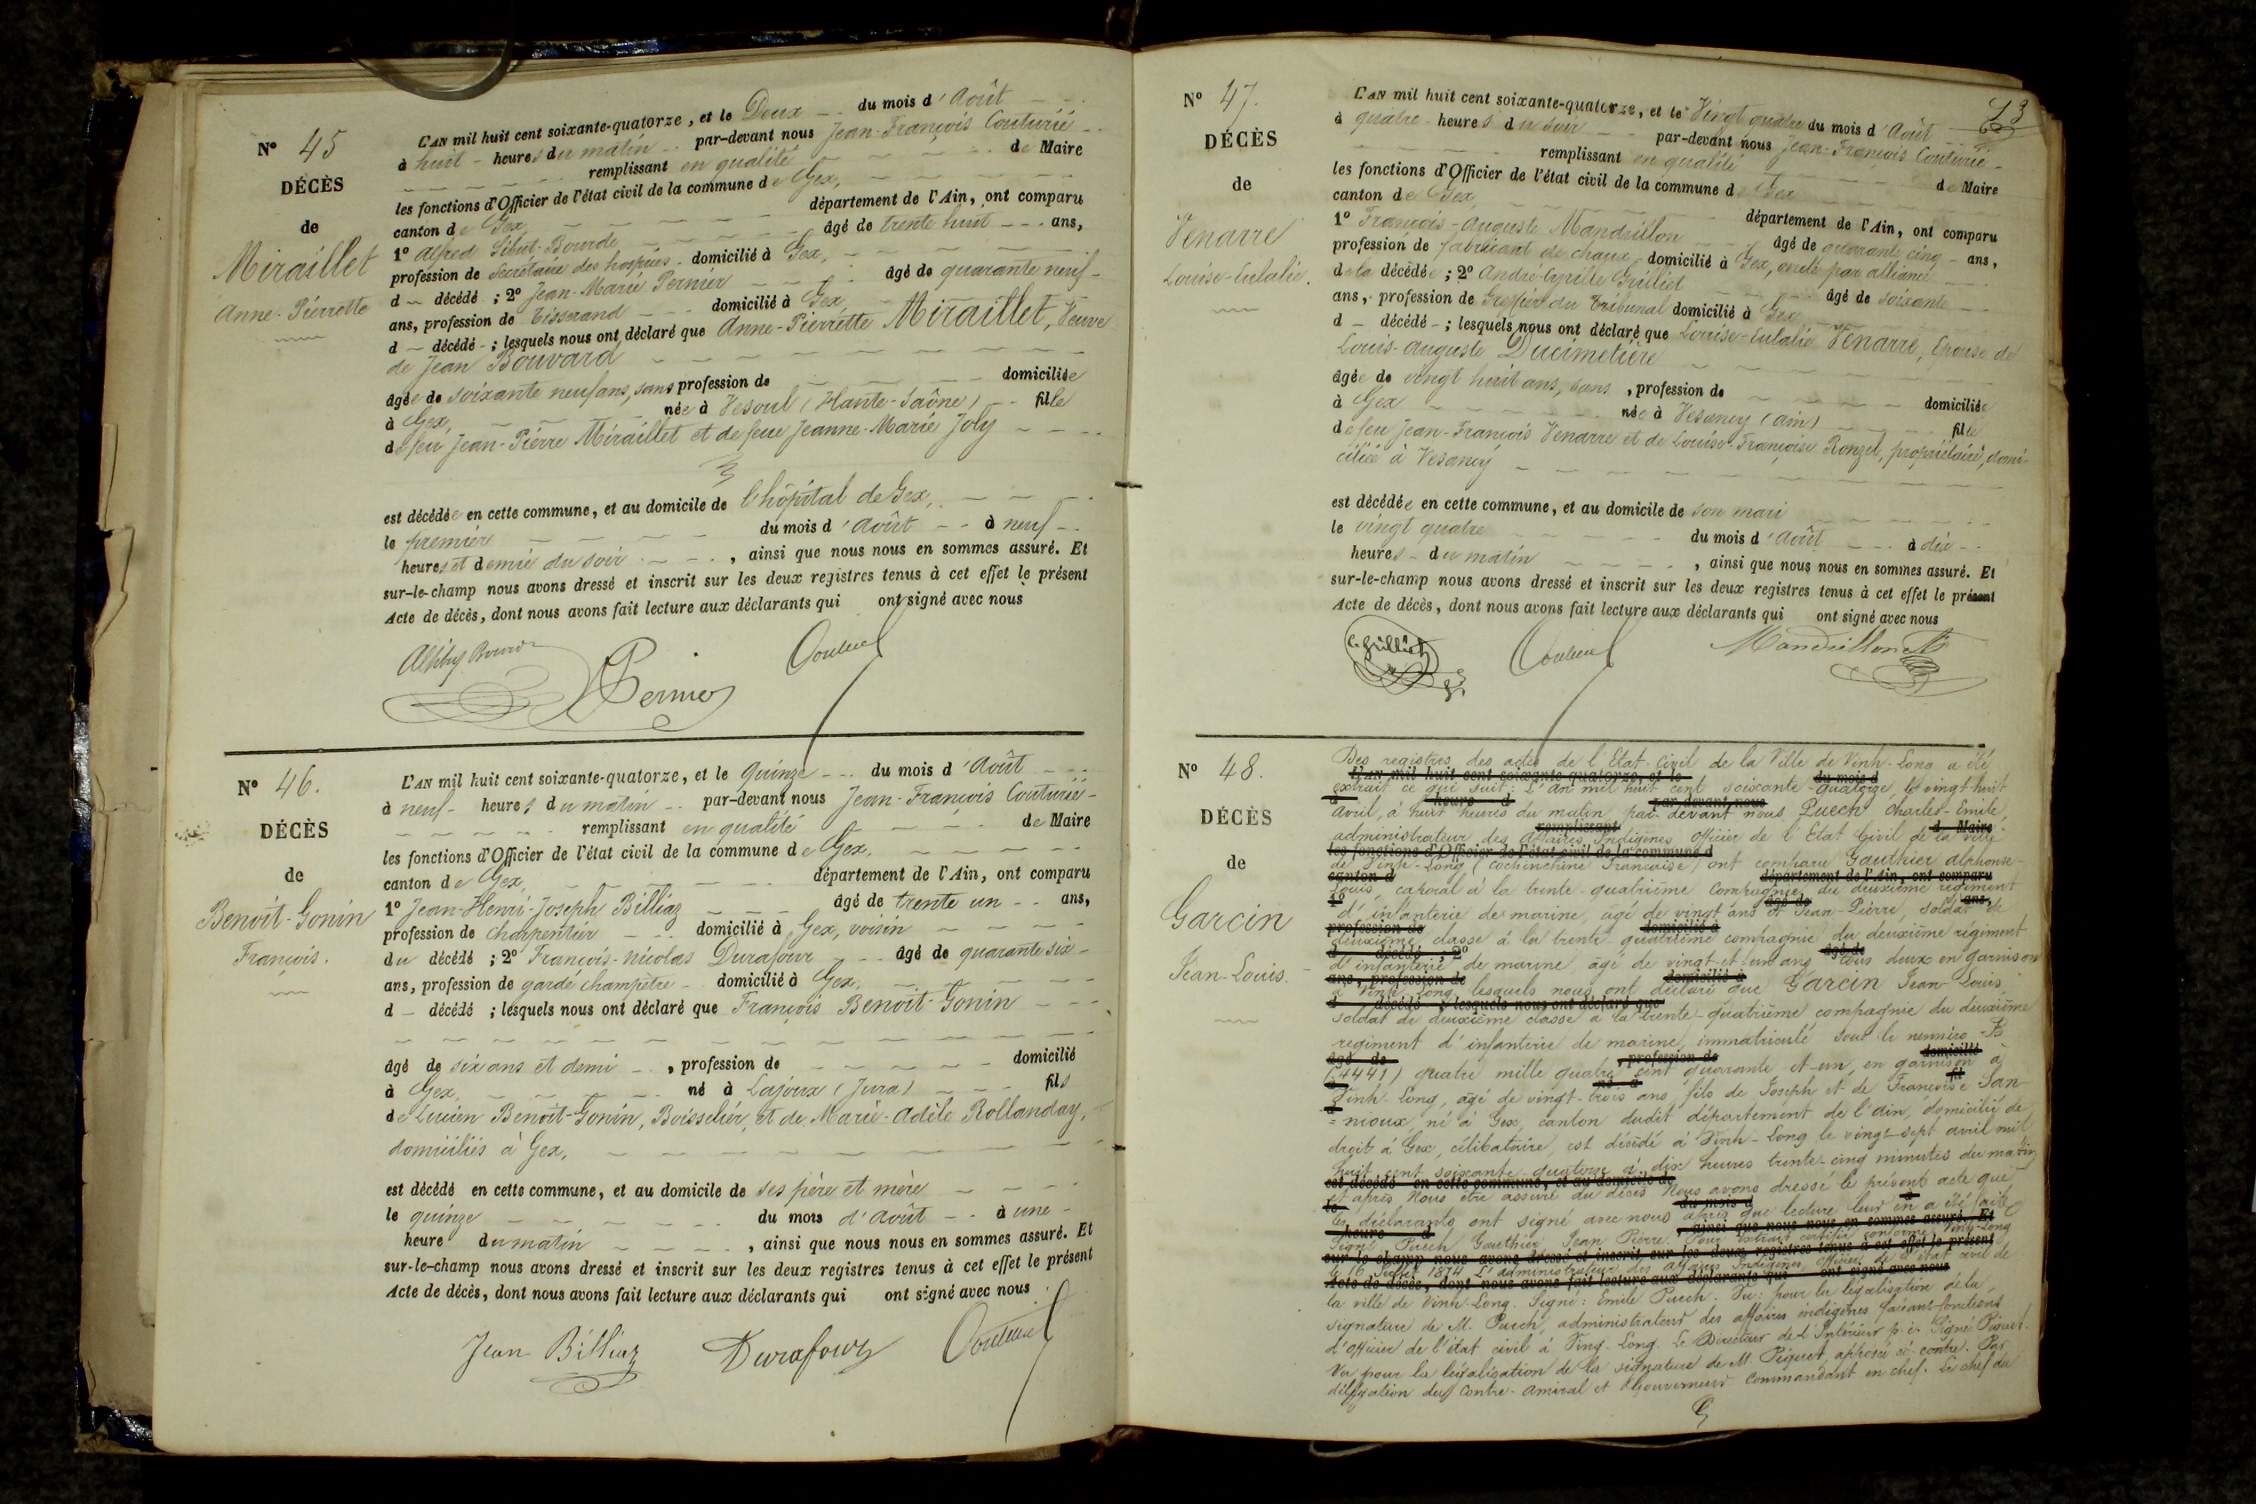 N° 45
DÉCÈS
de
Miraillet
Anne-Pierrette
L'AN mil huit cent soixante-quatorze, et le Deux du mois d'Août
à huit heures du matin par-devant nous Jean-François Couturié
remplissant en qualité de Maire
les fonctions d'Officier de l'état civil de la commune de Gex,
canton de Gex département de l'Ain, ont comparu
1° Alfred Sibut-Bourde âgé de trente huit ans,
profession de Secrétaire des hospices domicilié à Gex,
d décédé ; 2° Jean-Marie Pernier âgé de quarante neuf
ans, profession de Tisserand domicilié à Gex
d décédé ; lesquels nous ont déclaré que Anne-Pierrette Miraillet, Veuve
de Jean Bouvard
âgée de soixante neuf ans, sans profession de domiciliée
à Gex, née à Vesoul (Haute-Saône) fille
de feu Jean-Pierre Miraillet et de feue Jeanne-Marie Joly
est décédée en cette commune, et au domicile de l'hôpital de Gex,
le premier du mois d'Août à neuf
heures et demie du soir, ainsi que nous nous en sommes assuré. Et
sur-le-champ nous avons dressé et inscrit sur les deux registres tenus à cet effet le présent
Acte de décès, dont nous avons fait lecture aux déclarants qui ont signé avec nous
Pernier
N° 46.
DÉCÈS
de
Benoit-Gonin
François.
L'AN mil huit cent soixante-quatorze, et le quinze du mois d'Août
à neuf heures du matin par-devant nous Jean-François Couturié
remplissant en qualité de Maire
les fonctions d'Officier de l'état civil de la commune de Gex.
canton de Gex, département de l'Ain, ont comparu
1° Jean-Henri-Joseph Billiaz âgé de trente un ans,
profession de charpentier domicilié à Gex, voisin
du décédé ; 2° François-Nicolas Durafour âgé de quarante six
ans, profession de garde champêtre domicilié à Gex.
d décédé ; lesquels nous ont déclaré que François Benoit-Gonin
âgé de six ans et demi, profession de domicilié
à Gex, né à Lajoux (Jura) fils
de Lucien Benoit-Gonin, Boisselier, et de Marie-Adèle Rollanday,
domiciliés à Gex,
est décédé en cette commune, et au domicile de ses père et mère
le quinze du mois d'Août à une
heure du matin, ainsi que nous nous en sommes assuré. Et
sur-le-champ nous avons dressé et inscrit sur les deux registres tenus à cet effet le présent
Acte de décès, dont nous avons fait lecture aux déclarants qui ont signé avec nous
Jean Billiaz Durafour
N° 47.
DÉCÈS
de
Venarre
Louise-Eulalie.
L'AN mil huit cent soixante-quatorze, et le Vingt quatre du mois d'Août
à quatre heures du soir par-devant nous Jean-François Couturié
remplissant en qualité de Maire
les fonctions d'Officier de l'état civil de la commune de Gex
canton de Gex département de l'Ain, ont comparu
1° François-Auguste Mandrillon âgé de quarante cinq ans,
profession de fabricant de chaux, domicilié à Gex, oncle par alliance
de la décédée ; 2° André-Cyrille Grillet âgé de soixante
ans, profession de Greffier du Tribunal domicilié à Gex
d décédé ; lesquels nous ont déclaré que Louise-Eulalie Venarre, Epouse de
Louis-Auguste Ducimetière
âgée de vingt huit ans, sans, profession de domiciliée
à Gex née à Vesancy (ain) fille
de feu Jean-François Venarre et de Louise-Françoise Ronzel, propriétaire, domi-
ciliée à Vesancy
est décédée en cette commune, et au domicile de son mari
le vingt quatre du mois d'Août à dix
heures du matin, ainsi que nous nous en sommes assuré. Et
sur-le-champ nous avons dressé et inscrit sur les deux registres tenus à cet effet le présent
Acte de décès, dont nous avons fait lecture aux déclarants qui ont signé avec nous
Mandrillon
N° 48.
DÉCÈS
de
Garcin
Jean-Louis.
Des registres des actes de l'Etat Civil de la Ville de Vinh-Long a été
extrait ce qui suit: L'an mil huit cent soixante-quatorze, le vingt huit
Avril, à huit heures du matin par devant nous Puech Charles-Emile,
administrateur des affaires Indigènes officier de l'Etat Civil de la ville
de Vinh-Long (Cochinchine Française) ont comparu Gauthier Alphonse-
Louis, caporal à la trente-quatrième compagnie du deuxième régiment
d'infanterie de marine, âgé de vingt ans et Jean-Pierre, soldat de
deuxième classe à la trente quatrième compagnie du deuxième régiment
d'infanterie de marine âgé de vingt-et-un ans tous deux en garnison
à Vinh-Long, lesquels nous ont déclaré que Garcin Jean-Louis,
soldat de deuxième classe à la trente-quatrième compagnie du deuxième
régiment d'infanterie de marine, immatriculé sous le numéro
(4441) quatre mille quatre cent quarante et-un, en garnison à
Vinh-Long, âgé de vingt-trois ans, fils de Joseph et de Françoise San-
=nioux, né à Gex, canton dudit département de l'ain, domicilié de
droit à Gex, célibataire, est décédé à Vinh-Long le vingt-sept avril mil
huit cent soixante quatorze à dix heures trente-cinq minutes du matin
Et après Nous être assuré du décès Nous avons dressé le présent acte que
les déclarants ont signé avec nous après que lecture leur en a été faite
Signé Puech Gauthier Jean Pierre. Pour extrait certifié conforme Vinh-Long
le 16 1874 L'administrateur des affaires Indigènes Officier de l'état civil de
la ville de Vinh-Long. Signé: Emile Puech. Vu: pour la légalisation de la
signature de M. Puech, administrateur des affaires indigènes faisant fonctions
d'officier de l'état civil à Ving-Long. Le Directeur de l'Intérieur p. i. Signé Piquet.
Vu pour la légalisation de la signature de M. Piquet, apposée ci-contre. Par
délégation du Contre-amiral et Gouverneur Commandant en chef. Le chef du